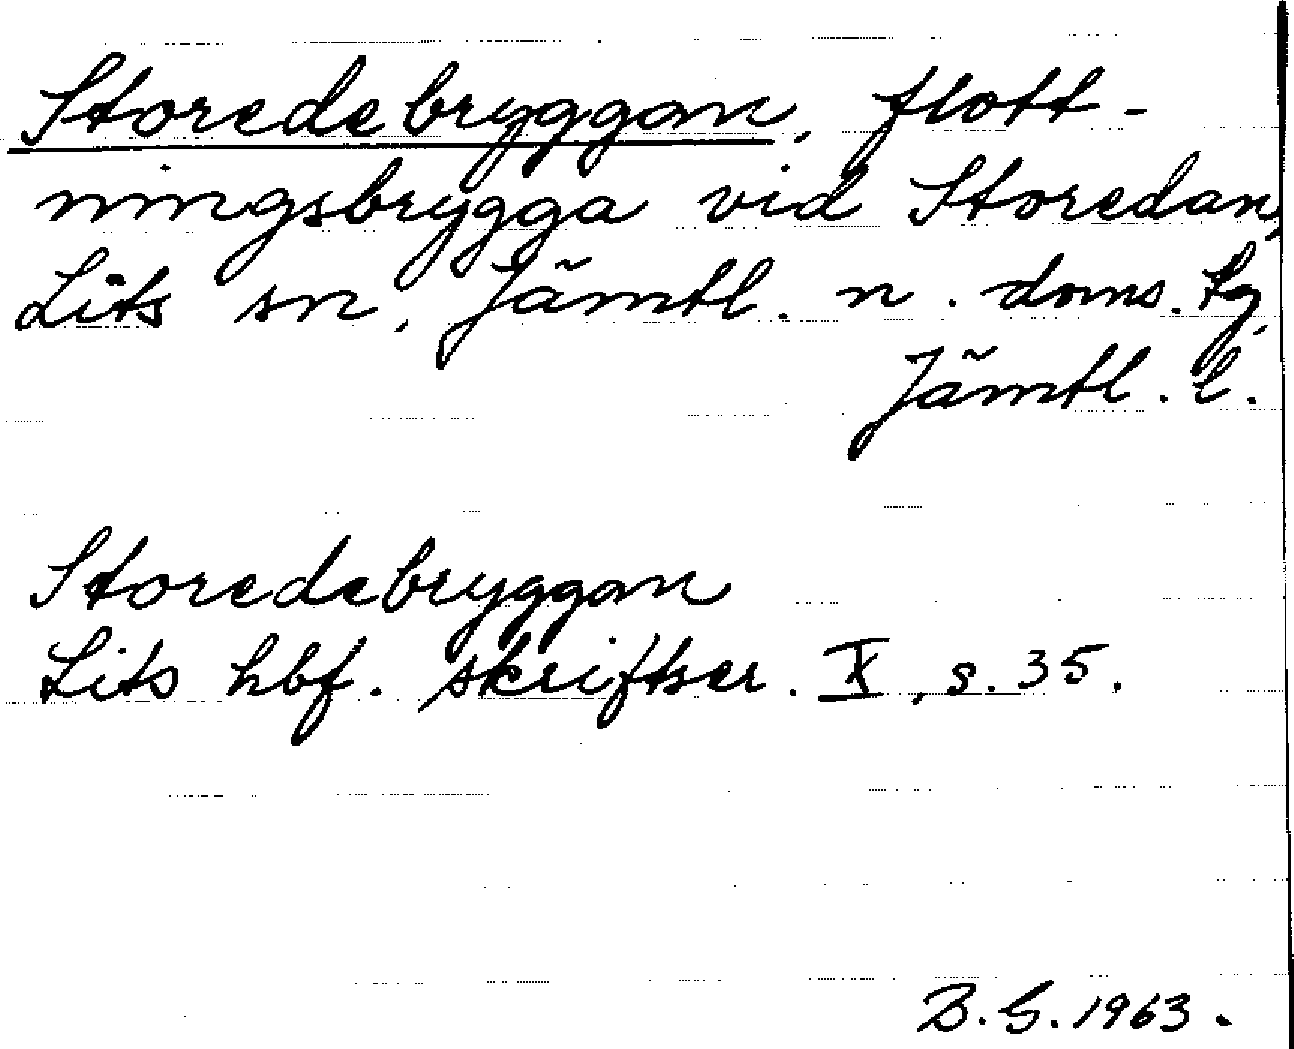 Storedebryggan, flott-
ningsbrygga vid Storedan,
Lits sn, Jämtl. n. doms. tg,
Jämtl. l.
Storedebryggan
Lits hbf. skriftser. X, s. 35.
B.G. 1963.